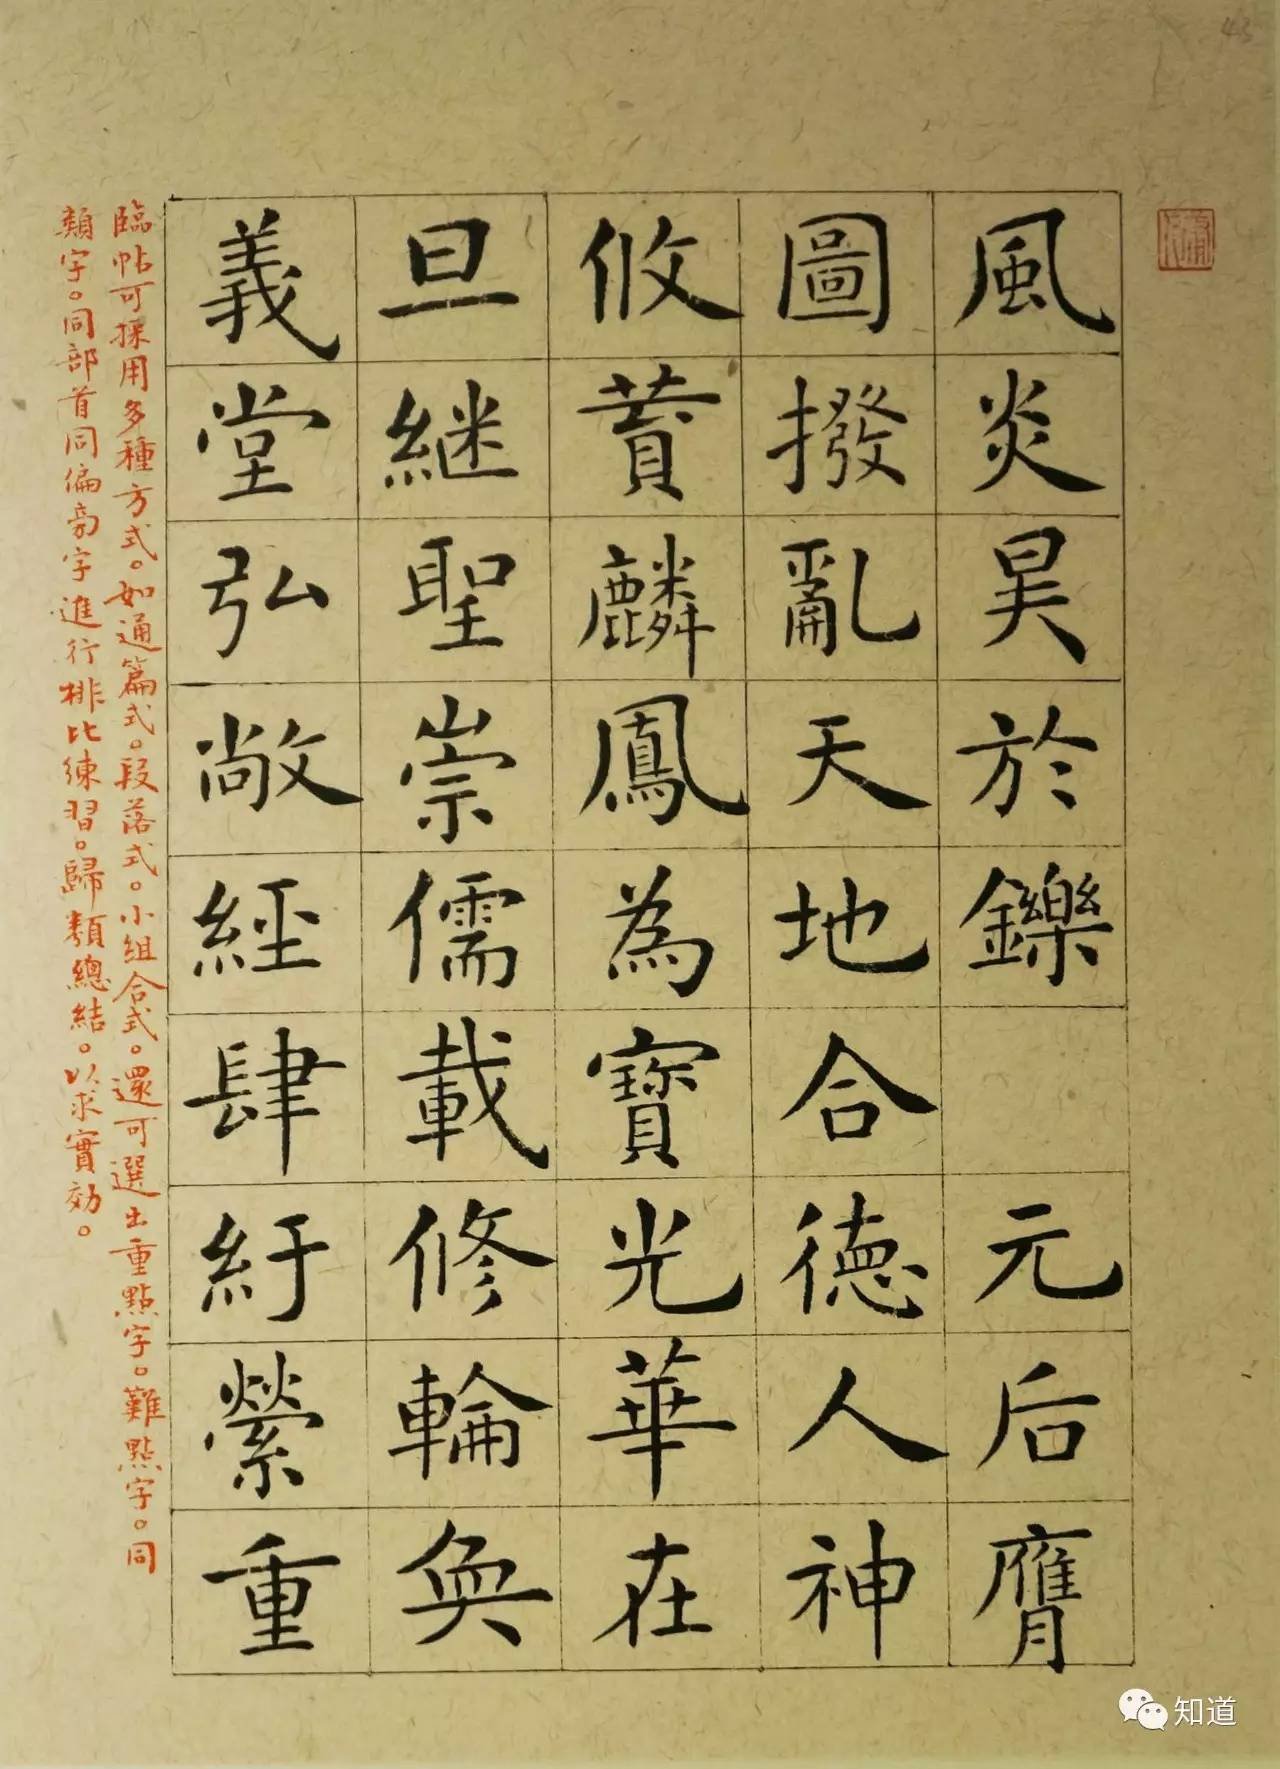 風炎昊於鑠 元后膺
圖撥亂天地合德人神
攸贊麟鳳為寶光華在
旦継聖崇儒載修輪奐
義堂弘敞經肆紆縈重
臨帖可採用多種方式。如通篇式。段落式。小組合式。還可選出重點字。難點字。同
類字。同部首同偏旁字進行排比練習。歸類總結。以求實効。
43
知道